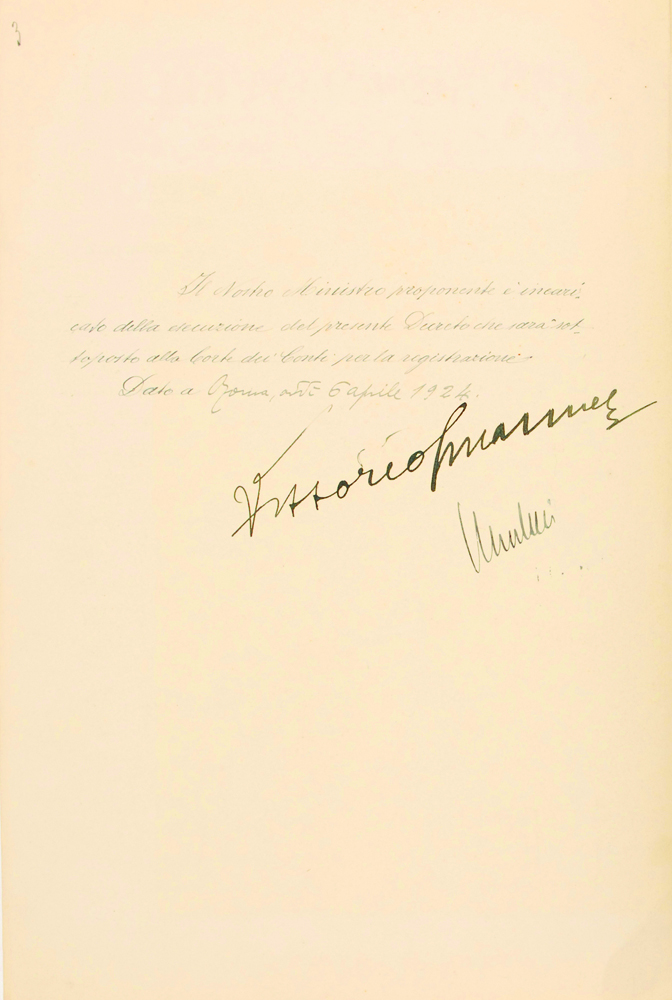 3
Il Nostro Ministro proponente è incari-
cato della esecuzione del presente Decreto che sarà sot-
toposto alla Corte dei Conti per la registrazione.
Dato a Roma, addì 6 aprile 1924.
Vittorio Emanuele